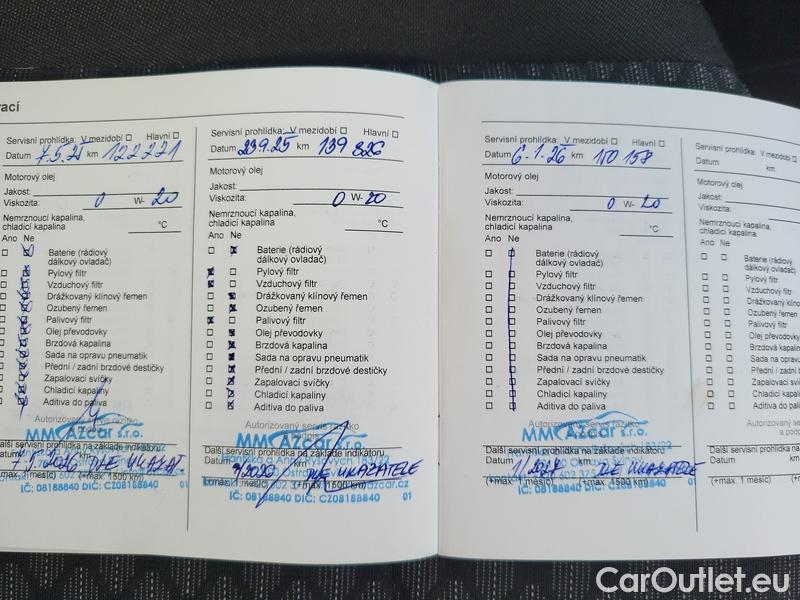 rací
Servisní prohlídka: V mezidobí Hlavní
Datum 7.5.25 km 122771
Motorový olej
Jakost:
Viskozita: 0 W- 20
Nemrznoucí kapalina,
chladicí kapalina °C
Ano Ne
Baterie (rádiový
dálkový ovladač)
Pylový filtr
Vzduchový filtr
Drážkovaný klínový řemen
Ozubený řemen
Palivový filtr
Olej převodovky
Brzdová kapalina
Sada na opravu pneumatik
Přední / zadní brzdové destičky
Zapalovací svíčky
Chladicí kapaliny
Aditiva do paliva
Autorizovaný servis razítko
MM AZcar s.r.o.
Další servisní prohlídka na základě indikátoru
Datum km
7.5.2026 DLE UKAZAT
(+max. 1 měsíc) (+max. 1500 km)
IČ: 08188840 DIČ: CZ08188840 01
Servisní prohlídka: V mezidobí Hlavní
Datum 23.9.25 km 139 826
Motorový olej
Jakost:
Viskozita: 0 W- 20
Nemrznoucí kapalina,
chladicí kapalina °C
Ano Ne
Baterie (rádiový
dálkový ovladač)
Pylový filtr
Vzduchový filtr
Drážkovaný klínový řemen
Ozubený řemen
Palivový filtr
Olej převodovky
Brzdová kapalina
Sada na opravu pneumatik
Přední / zadní brzdové destičky
Zapalovací svíčky
Chladicí kapaliny
Aditiva do paliva
Autorizovaný servis razítko
MM AZcar s.r.o.
Další servisní prohlídka na základě indikátoru
Datum km
9/2026 DLE UKAZATELE
(+max. 1 měsíc) (+max. 1500 km)
IČ: 08188840 DIČ: CZ08188840 01
Servisní prohlídka: V mezidobí Hlavní
Datum 6.1.26 km 150 158
Motorový olej
Jakost:
Viskozita: 0 W- 20
Nemrznoucí kapalina,
chladicí kapalina °C
Ano Ne
Baterie (rádiový
dálkový ovladač)
Pylový filtr
Vzduchový filtr
Drážkovaný klínový řemen
Ozubený řemen
Palivový filtr
Olej převodovky
Brzdová kapalina
Sada na opravu pneumatik
Přední / zadní brzdové destičky
Zapalovací svíčky
Chladicí kapaliny
Aditiva do paliva
Autorizovaný servis razítko
MM AZcar s.r.o.
Další servisní prohlídka na základě indikátoru
Datum km
DLE UKAZATELE
(+max. 1 měsíc) (+max. 1500 km)
IČ: 08188840 DIČ: CZ08188840 01
Servisní prohlídka: V mezidobí
Datum km
Motorový olej
Jakost:
Viskozita:
Nemrznoucí kapalina,
chladicí kapalina
Ano Ne
Baterie (rádiový
dálkový ovladač)
Pylový filtr
Vzduchový filtr
Drážkovaný klínový
Ozubený řemen
Palivový filtr
Olej převodovky
Brzdová kapalina
Sada na opravu
Přední / zadní
Zapalovací svíčky
Chladicí kapaliny
Aditiva do paliva
Autorizovaný
a podp
Další servisní prohlídka na
Datum
(+max. 1 měsíc) (+m
CarOutlet.eu